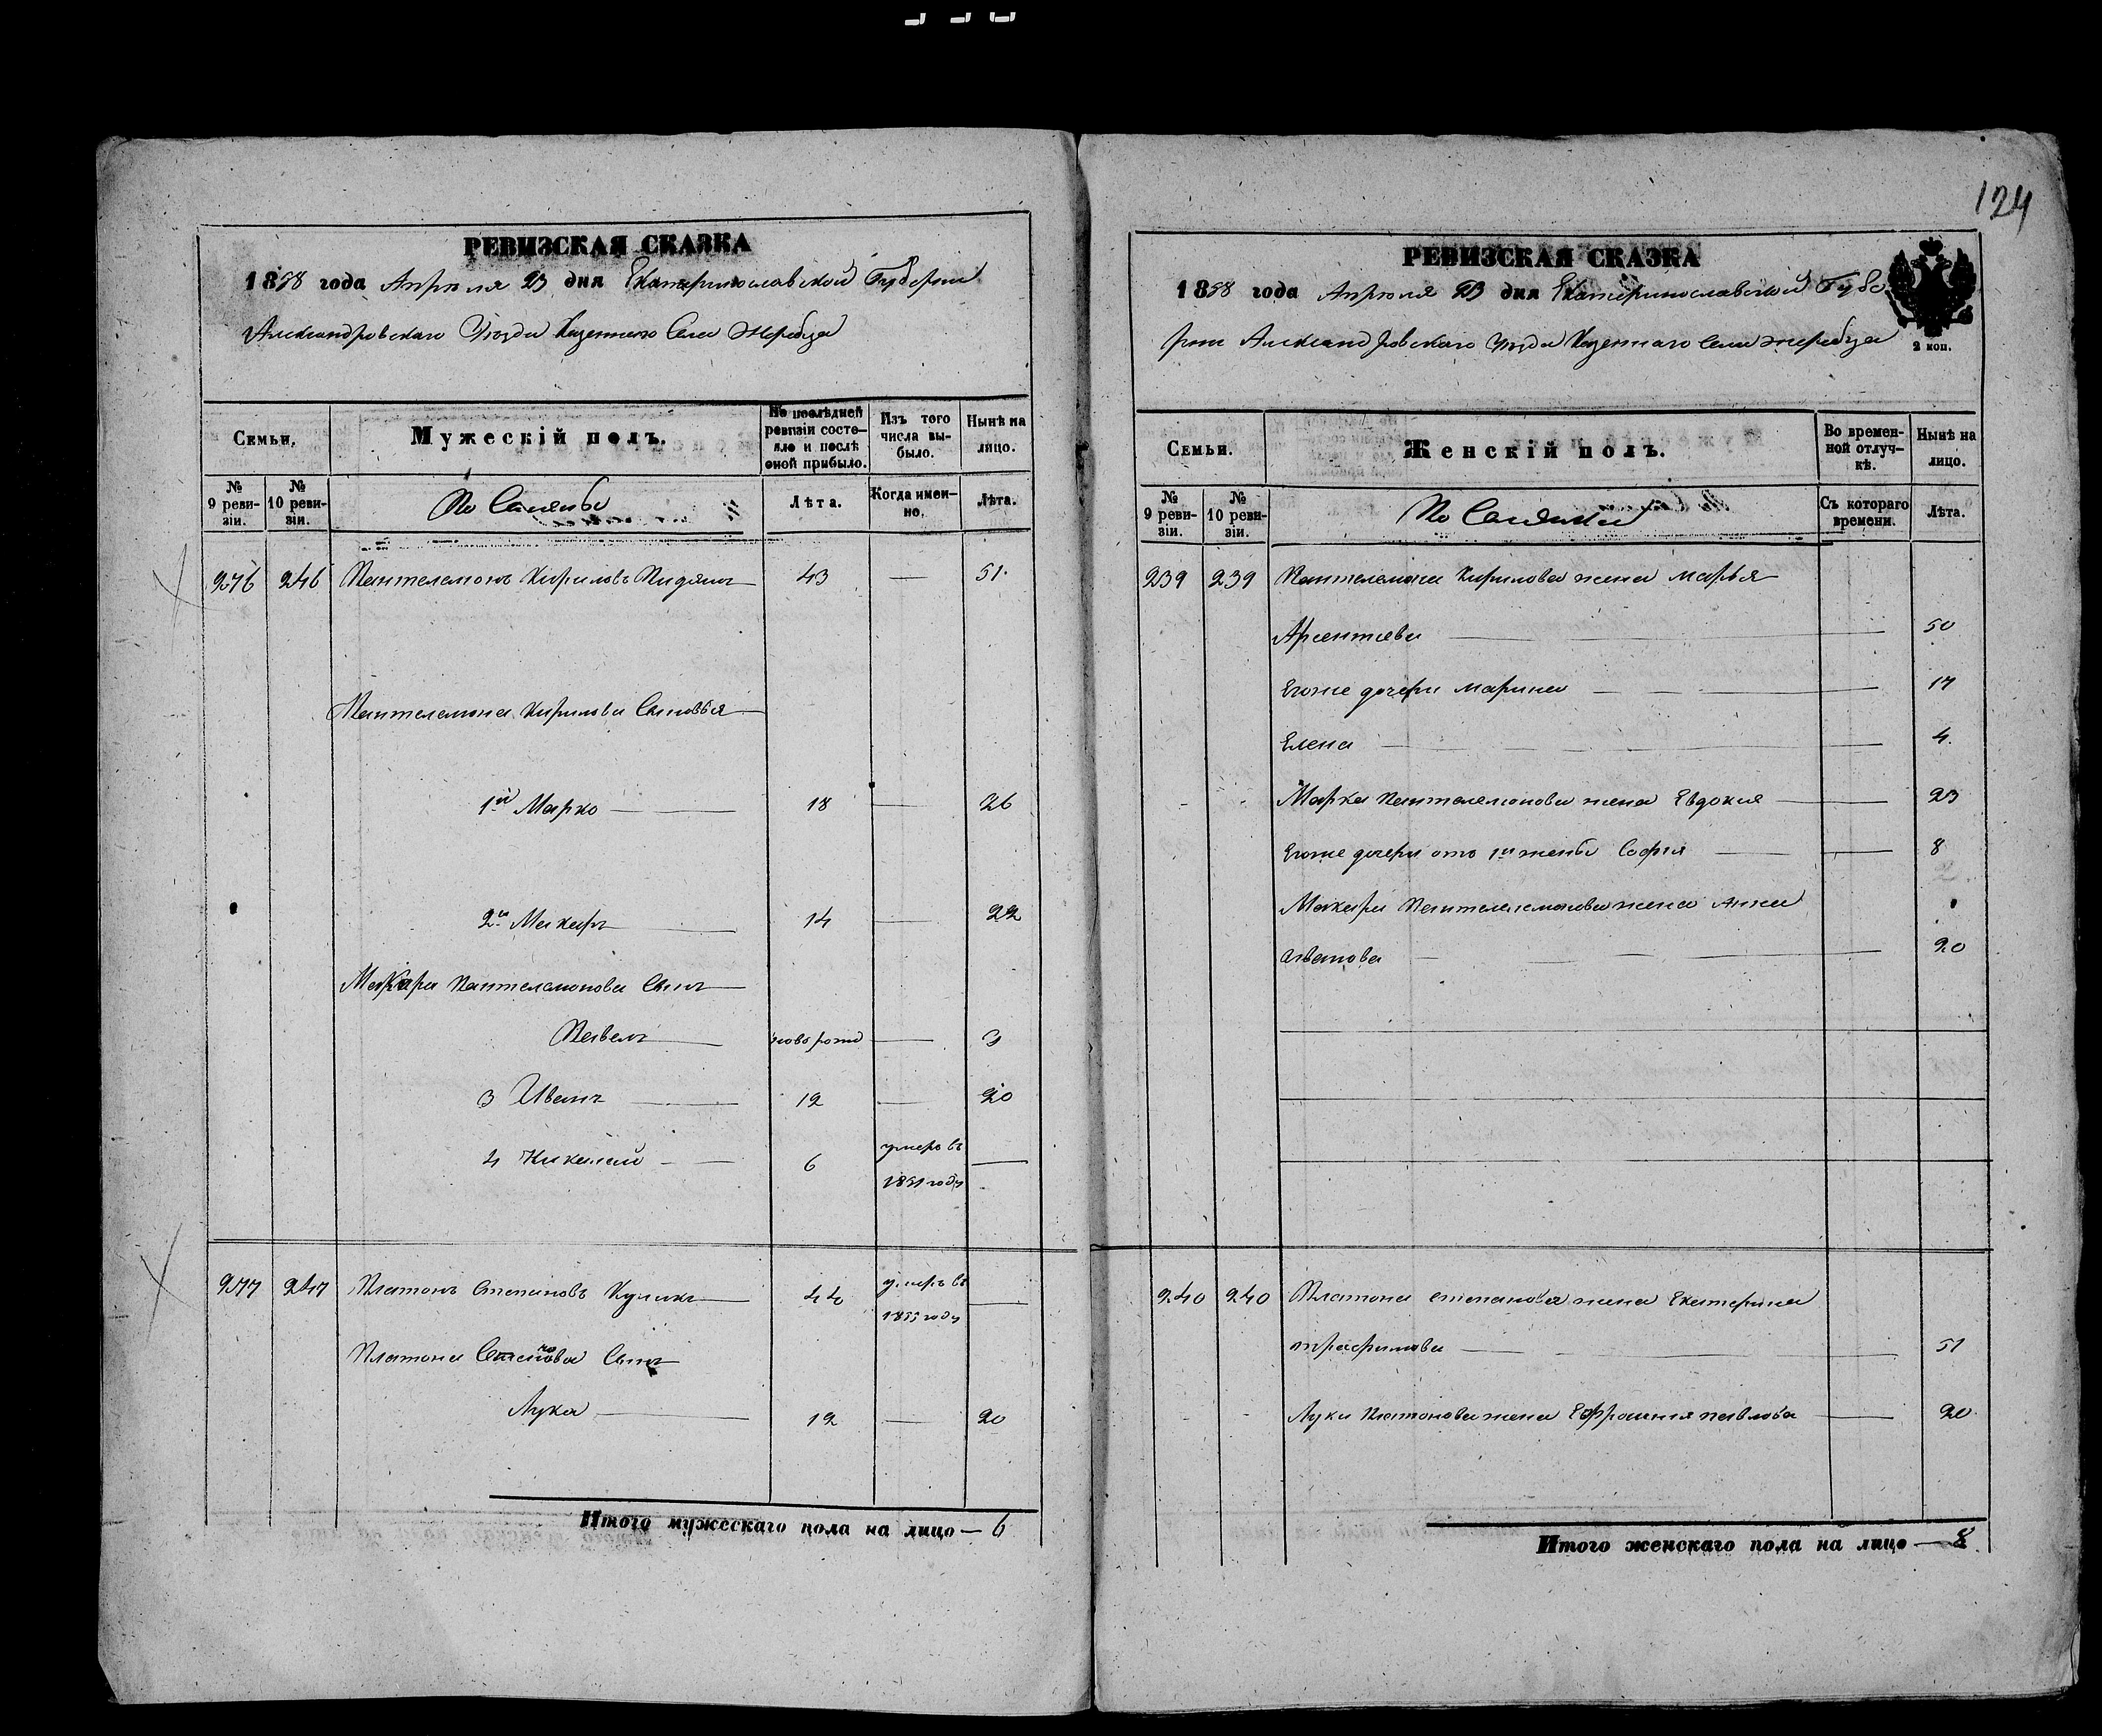 124
РЕВИЗСКАЯ СКАЗКА
1858 года Апреля 23 дня Екатеринославской Губернии
Александровскаго Уезда Казеннаго Села Жеребца
Семьи.
Мужескій полъ.
По послѣдней ревизіи состояло и послѣ оной прибыло.
Изъ того числа выбыло.
Нынѣ на лицо.
№ 9 ревизіи.
№ 10 ревизіи.
Лѣта.
Когда именно.
Лѣта.
276 246 Пантелемонъ Кириловъ 43 — 51
Пантелемона Кирилова Сыновья
1й Марко 18 — 26
2й Макаръ 14 — 22
Макара Пантелемонова Сынъ
Павелъ новорожд — 3
3 Иванъ 12 — 20
4 Николай 6 умеръ въ 1851 году —
277 247 Платонъ Степановъ Куликъ 44 умеръ въ 1855 году —
Платона Степанова Сынъ
Лука 12 — 20
Итого мужескаго пола на лицо — 6
РЕВИЗСКАЯ СКАЗКА
1858 года Апреля 23 дня Екатеринославской Губе
рнии Александровскаго Уезда Казеннаго Села Жеребца
2 коп.
Семьи.
Женскій полъ.
Во временной отлучкѣ.
Нынѣ на лицо.
№ 9 ревизіи.
№ 10 ревизіи.
Съ котораго времени.
Лѣта.
239 239 Пантелемона Кирилова жена Марья
Арсентиева — 50
Егоже дочери Марина — 17
Елена — 4
Марка Пантелемонова жена Евдокия — 23
Егоже дочери отъ 1й жены София — 8
Макара Пантелемонова жена Анна
— 20
240 240 Платона Степанова жена Екатерина
Трофимова — 51
Луки Платонова жена Ефросиния Павлова — 20
Итого женскаго пола на лицо — 8